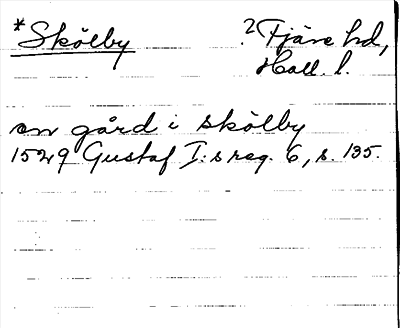 *Skölby
? Fjäre hd,
Hall. l.
en gård i skölby
1529 Gustaf I:s reg. 6, s. 135.